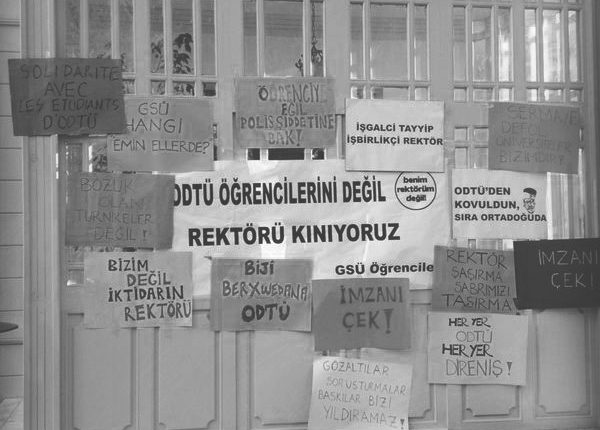 SOLIDARITE
AVEC
LES ETUDIANTS
D'ODTÜ
GSÜ
HANGI
EMİN ELLERDE?
ÖĞRENCİYE
EĞİL
POLİS ŞİDDETİNE
BAK!
İŞGALCİ TAYYİP
İŞBİRLİKÇİ REKTÖR
SERMAYE
DEFOL
ÜNİVERSİTELER
BİZİMDİR!
BOZUK
OLAN
TURNİKELER
DEĞİL!
ODTÜ ÖĞRENCİLERİNİ DEĞİL
REKTÖRÜ KINIYORUZ
GSÜ Öğrencile
benim
rektörüm
değil!
ODTÜ'DEN
KOVULDUN,
SIRA ORTADOĞUDA
BİZİM
DEĞİL
İKTİDARIN
REKTÖRÜ
BIJİ
BERXWEDANA
ODTÜ
İMZANI
ÇEK!
REKTÖR
ŞAŞIRMA
SABRIMIZI
TAŞIRMA
İMZANI
ÇEK!
HER YER
ODTÜ
HER YER
DİRENİŞ!
GÖZALTILAR
SORUŞTURMALAR
BASKILAR BİZİ
YILDIRAMAZ!